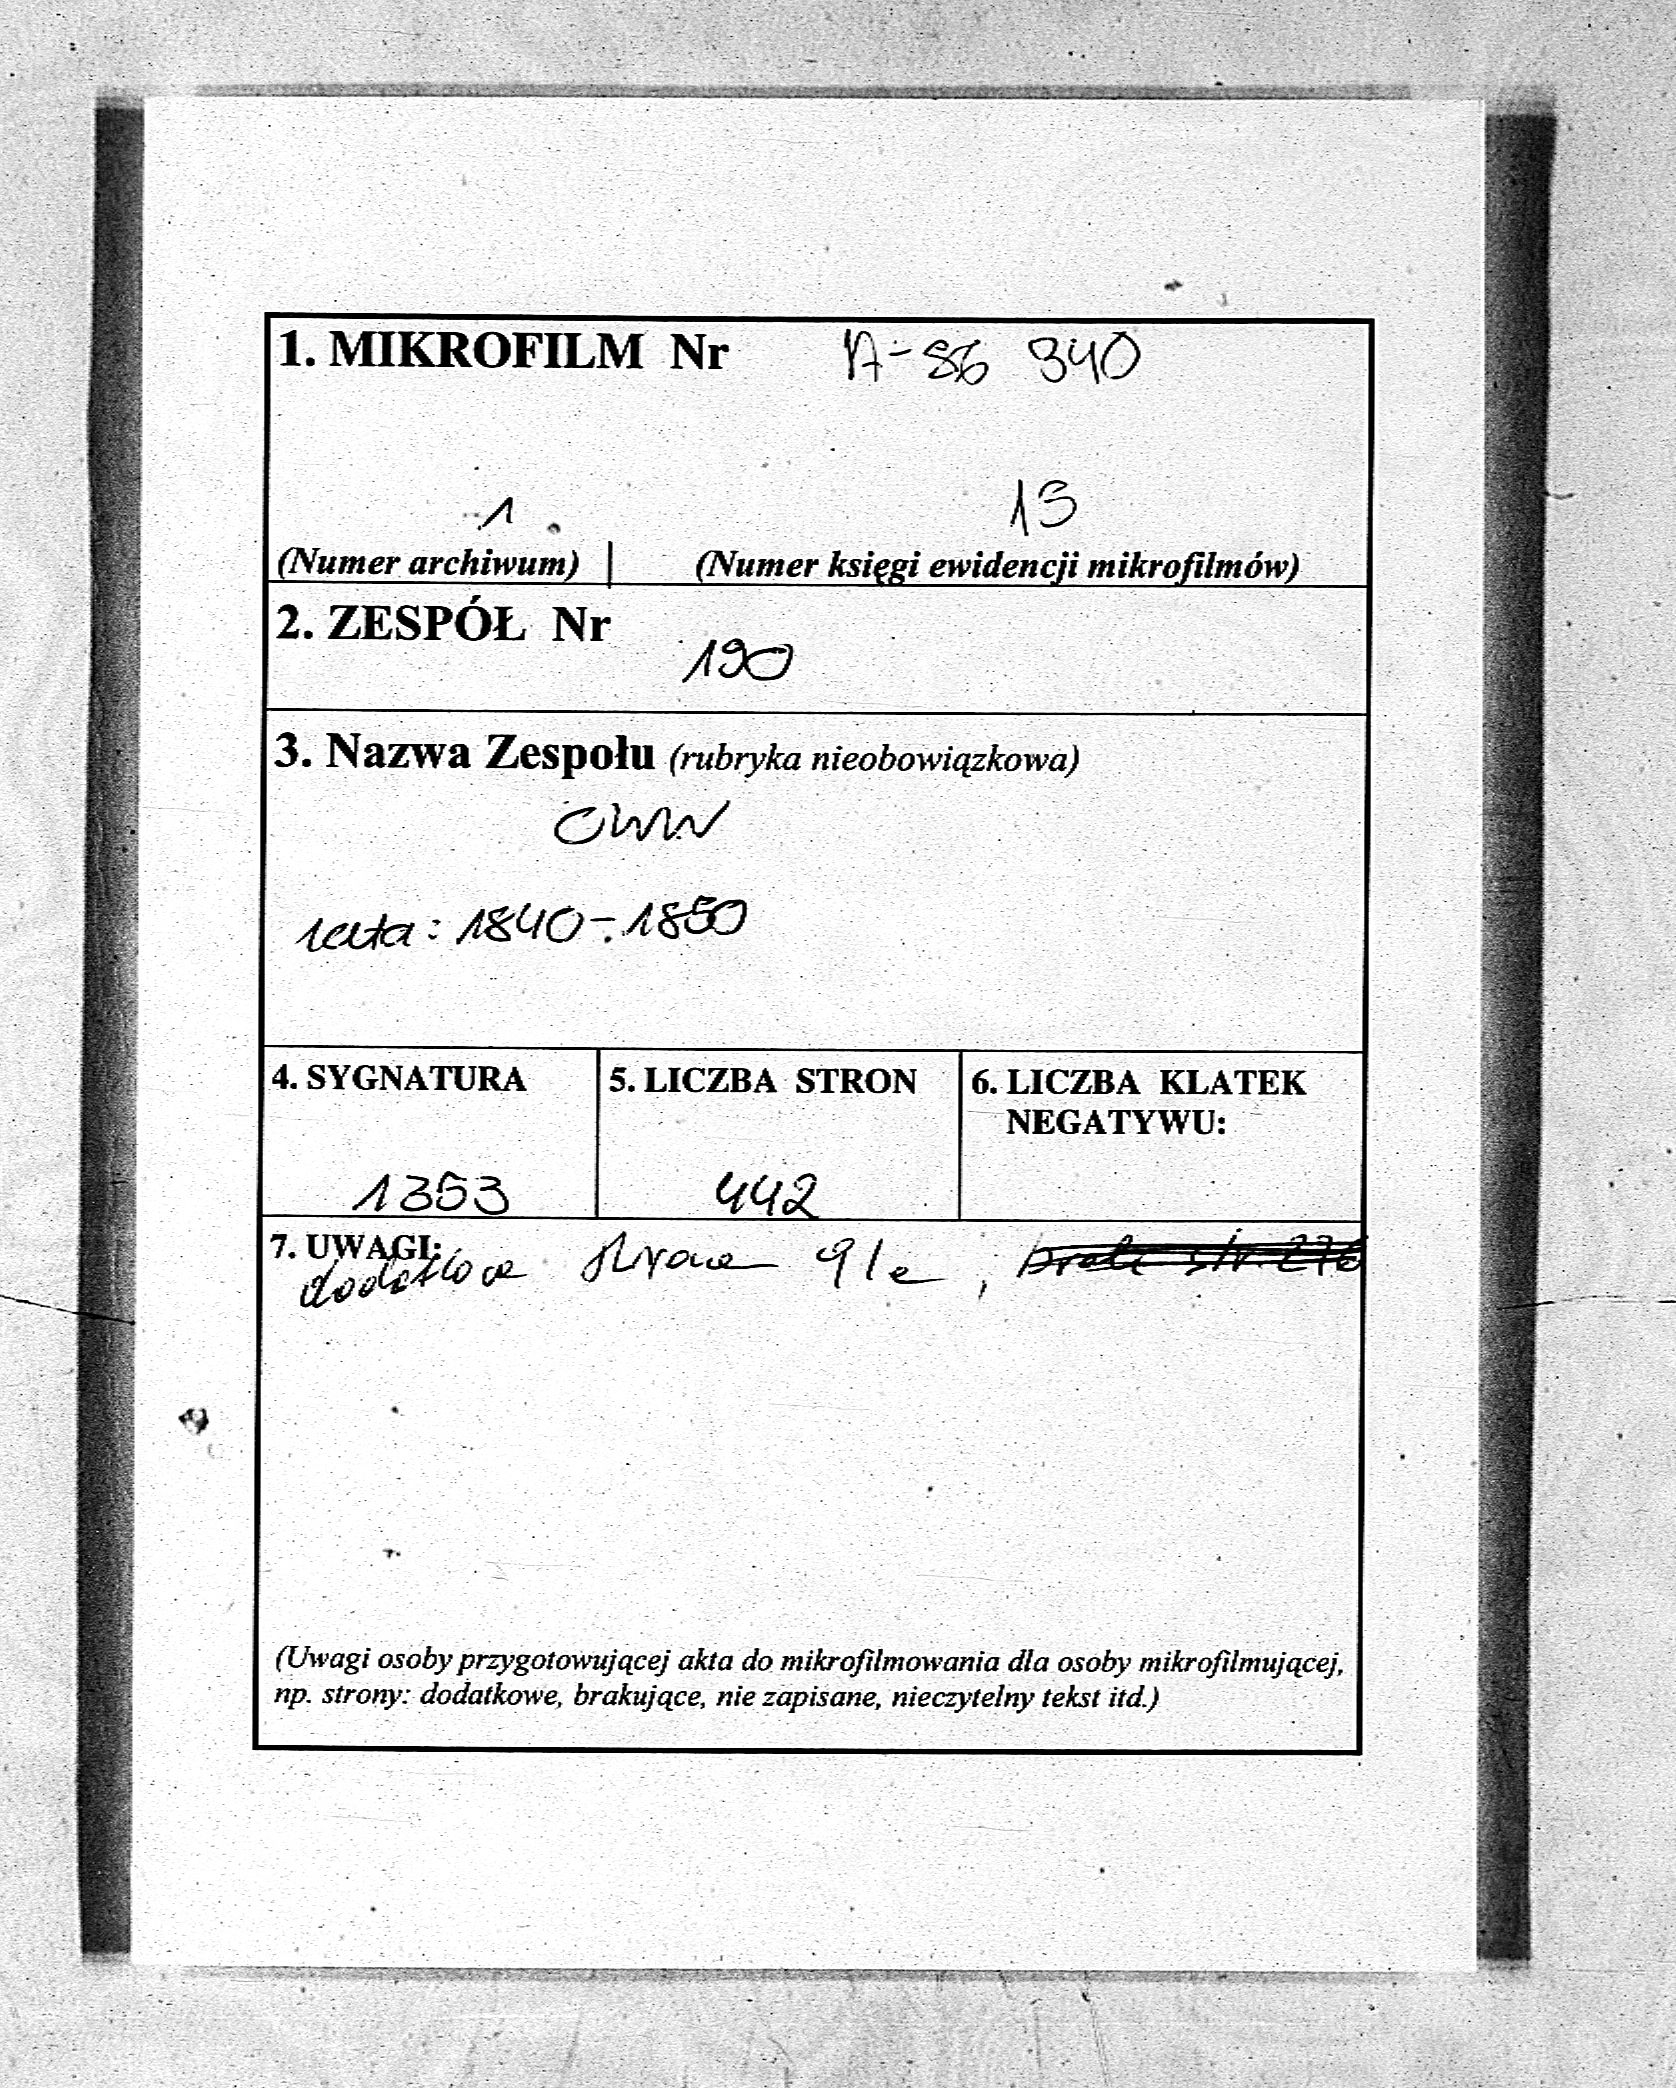 1. MIKROFILM Nr A-86 340
1 13
(Numer archiwum) | (Numer księgi ewidencji mikrofilmów)
2. ZESPÓŁ Nr
190
3. Nazwa Zespołu (rubryka nieobowiązkowa)
CWW
lata: 1840-1850
4. SYGNATURA
1353
5. LICZBA STRON
442
6. LICZBA KLATEK
NEGATYWU:
7. UWAGI:
dodatkowa strona 91a, brak str. 276
(Uwagi osoby przygotowującej akta do mikrofilmowania dla osoby mikrofilmującej,
np. strony: dodatkowe, brakujące, nie zapisane, nieczytelny tekst itd.)